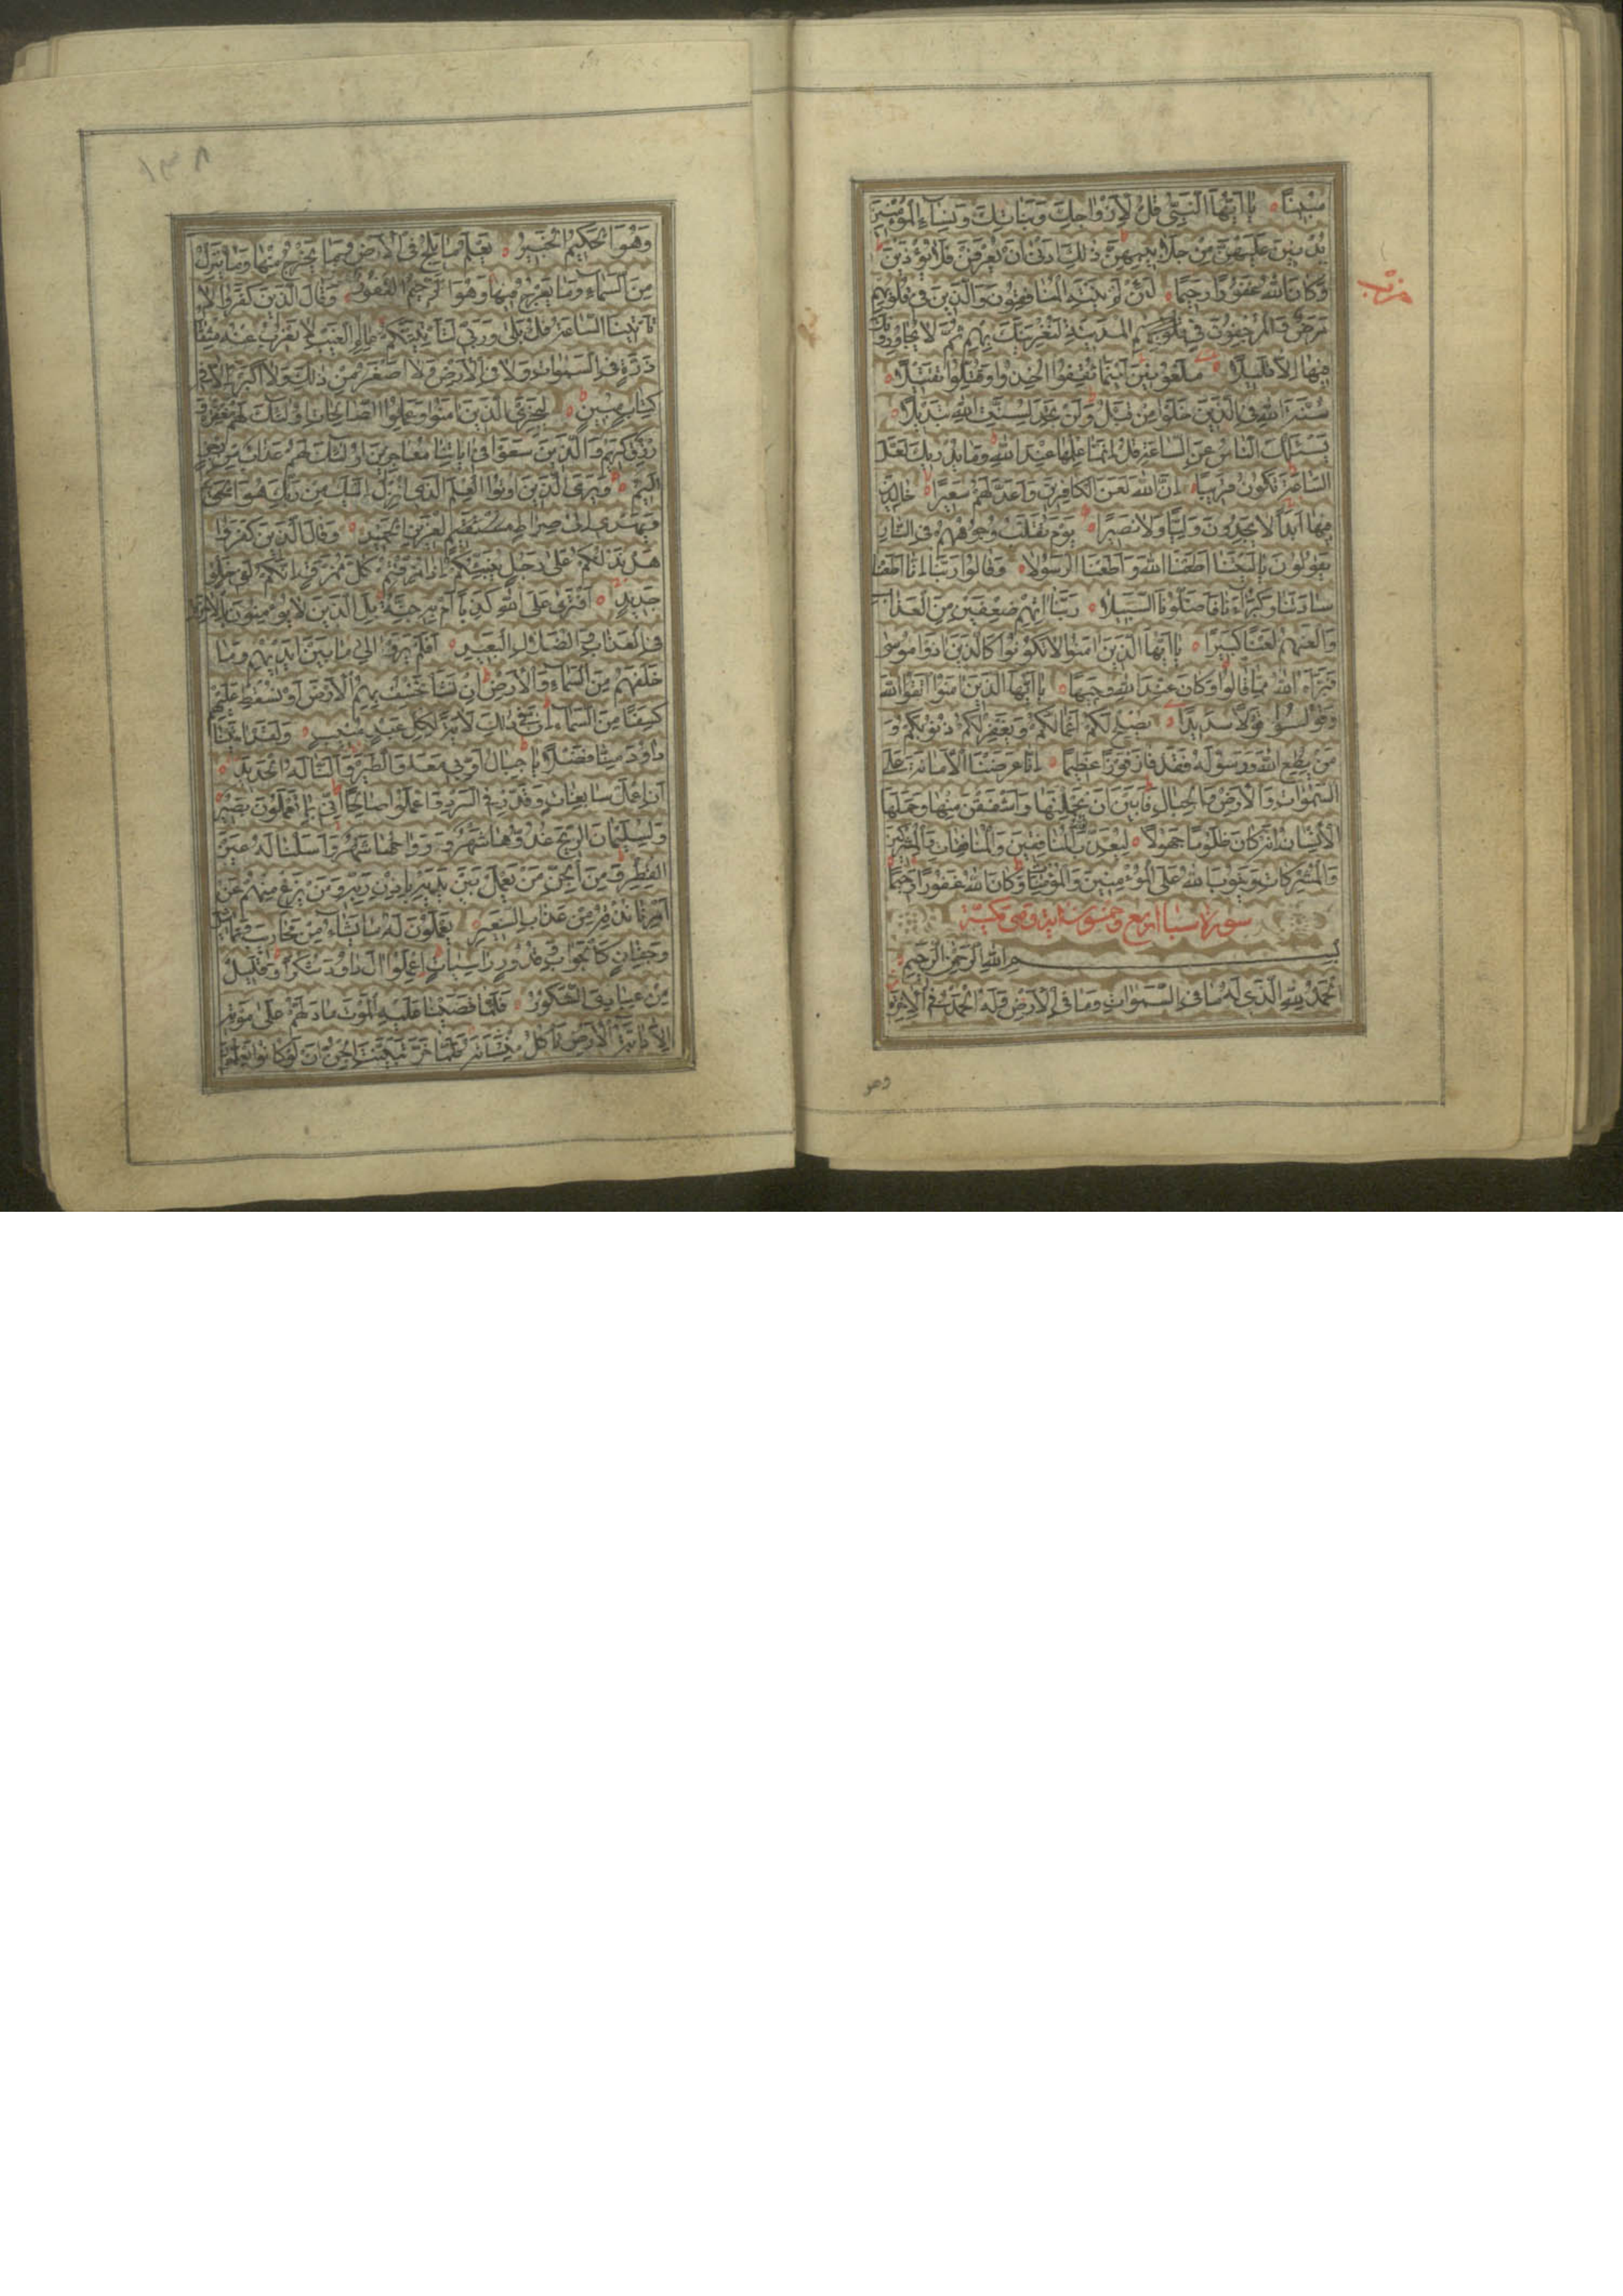 مُبِينًا يَا أَيُّهَا النَّبِيُّ قُلْ لِأَزْوَاجِكَ وَبَنَاتِكَ وَنِسَاءِ الْمُؤْمِنِينَ
يُدْنِينَ عَلَيْهِنَّ مِنْ جَلَابِيبِهِنَّ ذَلِكَ أَدْنَى أَنْ يُعْرَفْنَ فَلَا يُؤْذَيْنَ
وَكَانَ اللَّهُ غَفُورًا رَحِيمًا لَئِنْ لَمْ يَنْتَهِ الْمُنَافِقُونَ وَالَّذِينَ فِي قُلُوبِهِمْ
حزب
مَرَضٌ وَالْمُرْجِفُونَ فِي الْمَدِينَةِ لَنُغْرِيَنَّكَ بِهِمْ ثُمَّ لَا يُجَاوِرُونَكَ
فِيهَا إِلَّا قَلِيلًا مَلْعُونِينَ أَيْنَمَا ثُقِفُوا أُخِذُوا وَقُتِّلُوا تَقْتِيلًا
سُنَّةَ اللَّهِ فِي الَّذِينَ خَلَوْا مِنْ قَبْلُ وَلَنْ تَجِدَ لِسُنَّةِ اللَّهِ تَبْدِيلًا
يَسْئَلُكَ النَّاسُ عَنِ السَّاعَةِ قُلْ إِنَّمَا عِلْمُهَا عِنْدَ اللَّهِ وَمَا يُدْرِيكَ لَعَلَّ
السَّاعَةَ تَكُونُ قَرِيبًا إِنَّ اللَّهَ لَعَنَ الْكَافِرِينَ وَأَعَدَّ لَهُمْ سَعِيرًا خَالِدِينَ
فِيهَا أَبَدًا لَا يَجِدُونَ وَلِيًّا وَلَا نَصِيرًا يَوْمَ تُقَلَّبُ وُجُوهُهُمْ فِي النَّارِ
يَقُولُونَ يَا لَيْتَنَا أَطَعْنَا اللَّهَ وَأَطَعْنَا الرَّسُولَا وَقَالُوا رَبَّنَا إِنَّا أَطَعْنَا
سَادَتَنَا وَكُبَرَاءَنَا فَأَضَلُّونَا السَّبِيلَا رَبَّنَا آتِهِمْ ضِعْفَيْنِ مِنَ الْعَذَابِ
وَالْعَنْهُمْ لَعْنًا كَبِيرًا يَا أَيُّهَا الَّذِينَ آمَنُوا لَا تَكُونُوا كَالَّذِينَ آذَوْا مُوسَى
فَبَرَّأَهُ اللَّهُ مِمَّا قَالُوا وَكَانَ عِنْدَ اللَّهِ وَجِيهًا يَا أَيُّهَا الَّذِينَ آمَنُوا اتَّقُوا اللَّهَ
وَقُولُوا قَوْلًا سَدِيدًا يُصْلِحْ لَكُمْ أَعْمَالَكُمْ وَيَغْفِرْ لَكُمْ ذُنُوبَكُمْ وَ
مَنْ يُطِعِ اللَّهَ وَرَسُولَهُ فَقَدْ فَازَ فَوْزًا عَظِيمًا إِنَّا عَرَضْنَا الْأَمَانَةَ عَلَى
السَّمَوَاتِ وَالْأَرْضِ وَالْجِبَالِ فَأَبَيْنَ أَنْ يَحْمِلْنَهَا وَأَشْفَقْنَ مِنْهَا وَحَمَلَهَا
الْإِنْسَانُ إِنَّهُ كَانَ ظَلُومًا جَهُولًا لِيُعَذِّبَ اللَّهُ الْمُنَافِقِينَ وَالْمُنَافِقَاتِ وَالْمُشْرِكِينَ
وَالْمُشْرِكَاتِ وَيَتُوبَ اللَّهُ عَلَى الْمُؤْمِنِينَ وَالْمُؤْمِنَاتِ وَكَانَ اللَّهُ غَفُورًا رَحِيمًا
سورة سبا اربع وخمسون اية وهى مكية
بِسْمِ اللَّهِ الرَّحْمَنِ الرَّحِيمِ
الْحَمْدُ لِلَّهِ الَّذِي لَهُ مَا فِي السَّمَوَاتِ وَمَا فِي الْأَرْضِ وَلَهُ الْحَمْدُ فِي الْآخِرَةِ
وهو
١٣٨
وَهُوَ الْحَكِيمُ الْخَبِيرُ يَعْلَمُ مَا يَلِجُ فِي الْأَرْضِ وَمَا يَخْرُجُ مِنْهَا وَمَا يَنْزِلُ
مِنَ السَّمَاءِ وَمَا يَعْرُجُ فِيهَا وَهُوَ الرَّحِيمُ الْغَفُورُ وَقَالَ الَّذِينَ كَفَرُوا لَا
تَأْتِينَا السَّاعَةُ قُلْ بَلَى وَرَبِّي لَتَأْتِيَنَّكُمْ عَالِمِ الْغَيْبِ لَا يَعْزُبُ عَنْهُ مِثْقَالُ
ذَرَّةٍ فِي السَّمَوَاتِ وَلَا فِي الْأَرْضِ وَلَا أَصْغَرُ مِنْ ذَلِكَ وَلَا أَكْبَرُ إِلَّا فِي
كِتَابٍ مُبِينٍ لِيَجْزِيَ الَّذِينَ آمَنُوا وَعَمِلُوا الصَّالِحَاتِ أُولَئِكَ لَهُمْ مَغْفِرَةٌ وَ
رِزْقٌ كَرِيمٌ وَالَّذِينَ سَعَوْا فِي آيَاتِنَا مُعَاجِزِينَ أُولَئِكَ لَهُمْ عَذَابٌ مِنْ رِجْزٍ
أَلِيمٌ وَيَرَى الَّذِينَ أُوتُوا الْعِلْمَ الَّذِي أُنْزِلَ إِلَيْكَ مِنْ رَبِّكَ هُوَ الْحَقَّ
وَيَهْدِي إِلَى صِرَاطِ الْعَزِيزِ الْحَمِيدِ وَقَالَ الَّذِينَ كَفَرُوا
هَلْ نَدُلُّكُمْ عَلَى رَجُلٍ يُنَبِّئُكُمْ إِذَا مُزِّقْتُمْ كُلَّ مُمَزَّقٍ إِنَّكُمْ لَفِي خَلْقٍ
جَدِيدٍ أَفْتَرَى عَلَى اللَّهِ كَذِبًا أَمْ بِهِ جِنَّةٌ بَلِ الَّذِينَ لَا يُؤْمِنُونَ بِالْآخِرَةِ
فِي الْعَذَابِ وَالضَّلَالِ الْبَعِيدِ أَفَلَمْ يَرَوْا إِلَى مَا بَيْنَ أَيْدِيهِمْ وَمَا
خَلْفَهُمْ مِنَ السَّمَاءِ وَالْأَرْضِ إِنْ نَشَأْ نَخْسِفْ بِهِمُ الْأَرْضَ أَوْ نُسْقِطْ عَلَيْهِمْ
كِسَفًا مِنَ السَّمَاءِ إِنَّ فِي ذَلِكَ لَآيَةً لِكُلِّ عَبْدٍ مُنِيبٍ وَلَقَدْ آتَيْنَا
دَاوُدَ مِنَّا فَضْلًا يَا جِبَالُ أَوِّبِي مَعَهُ وَالطَّيْرَ وَأَلَنَّا لَهُ الْحَدِيدَ
أَنِ اعْمَلْ سَابِغَاتٍ وَقَدِّرْ فِي السَّرْدِ وَاعْمَلُوا صَالِحًا إِنِّي بِمَا تَعْمَلُونَ بَصِيرٌ
وَلِسُلَيْمَانَ الرِّيحَ غُدُوُّهَا شَهْرٌ وَرَوَاحُهَا شَهْرٌ وَأَسَلْنَا لَهُ عَيْنَ
الْقِطْرِ وَمِنَ الْجِنِّ مَنْ يَعْمَلُ بَيْنَ يَدَيْهِ بِإِذْنِ رَبِّهِ وَمَنْ يَزِغْ مِنْهُمْ عَنْ
أَمْرِنَا نُذِقْهُ مِنْ عَذَابِ السَّعِيرِ يَعْمَلُونَ لَهُ مَا يَشَاءُ مِنْ مَحَارِيبَ وَتَمَاثِيلَ
وَجِفَانٍ كَالْجَوَابِ وَقُدُورٍ رَاسِيَاتٍ اعْمَلُوا آلَ دَاوُدَ شُكْرًا وَقَلِيلٌ
مِنْ عِبَادِيَ الشَّكُورُ فَلَمَّا قَضَيْنَا عَلَيْهِ الْمَوْتَ مَا دَلَّهُمْ عَلَى مَوْتِهِ
إِلَّا دَابَّةُ الْأَرْضِ تَأْكُلُ مِنْسَأَتَهُ فَلَمَّا خَرَّ تَبَيَّنَتِ الْجِنُّ أَنْ لَوْ كَانُوا يَعْلَمُونَ